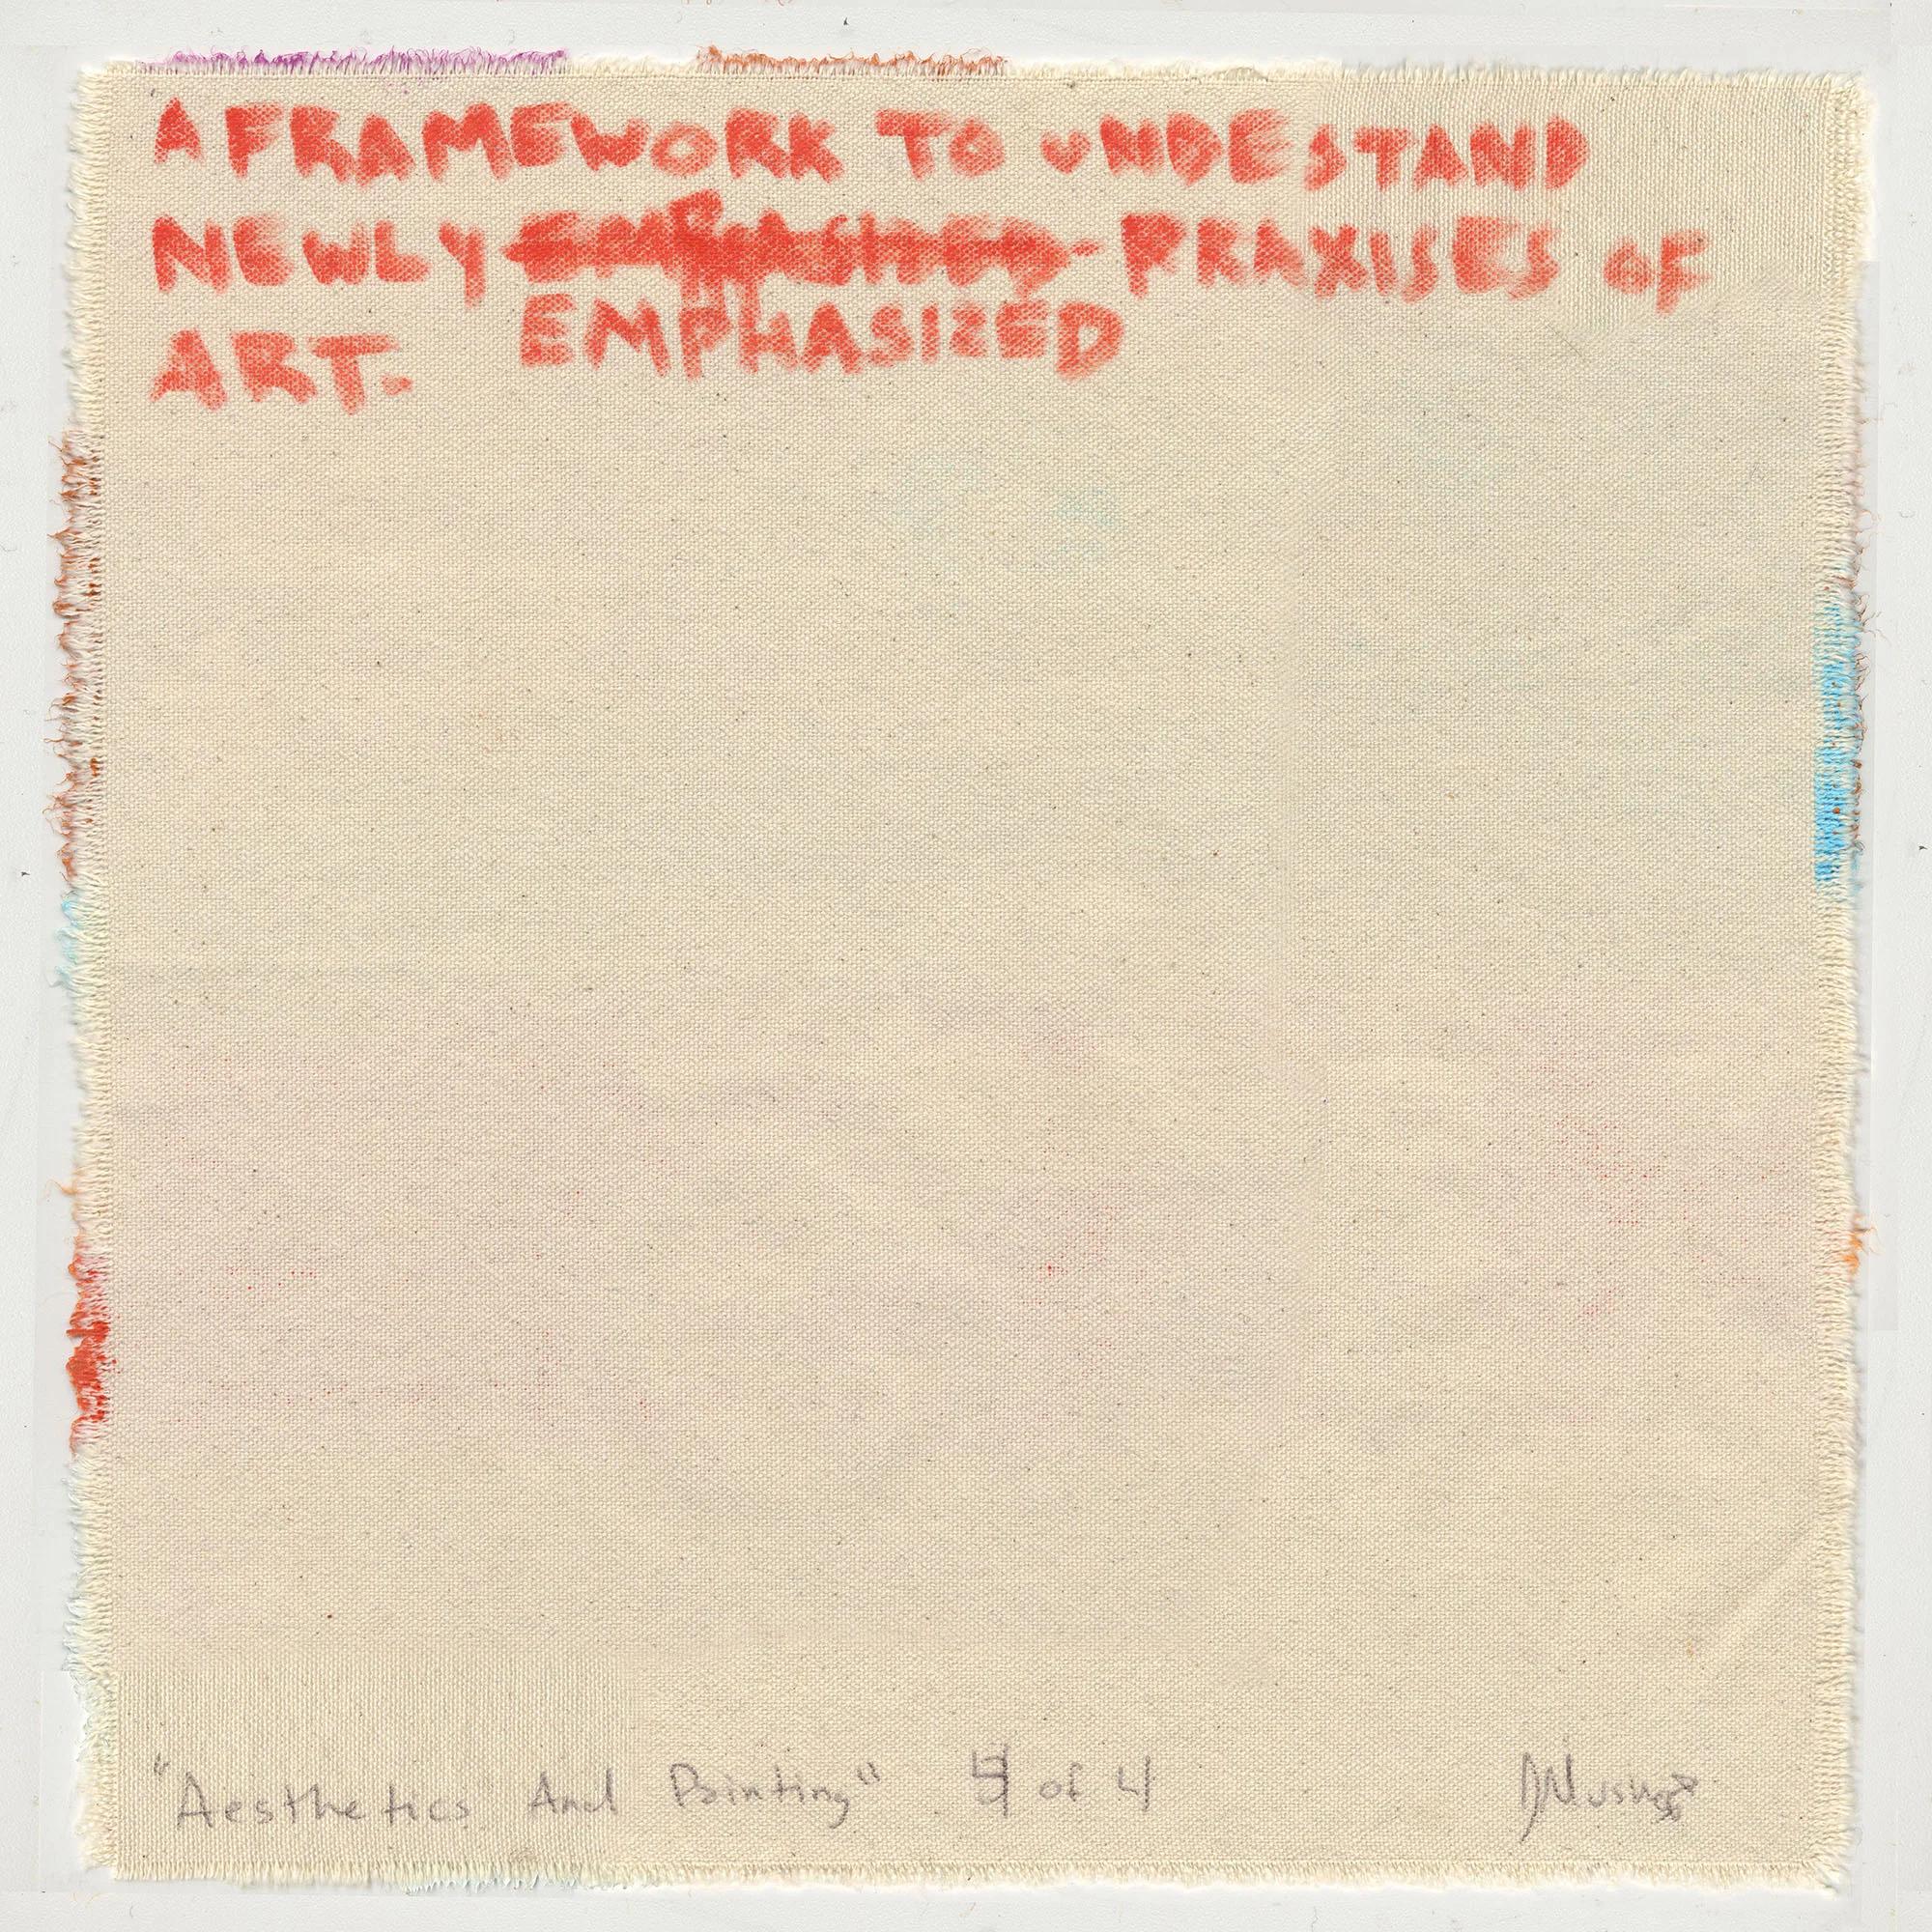 A FRAMEWORK TO UNDESTAND
NEWLY EMPHASIZED PRAXISES OF
ART.
"Aesthetics And Painting" 4 of 4